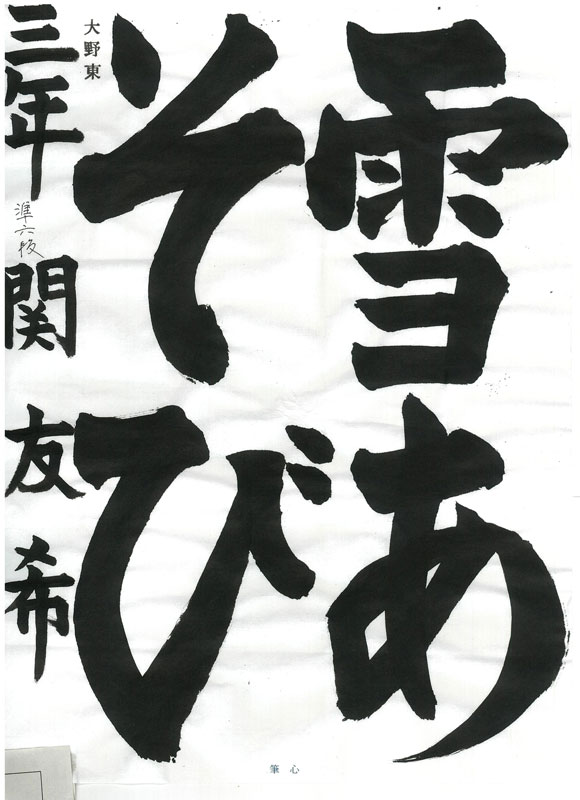 雪あ
そび
大野東
三年 関 友希
準六
筆心